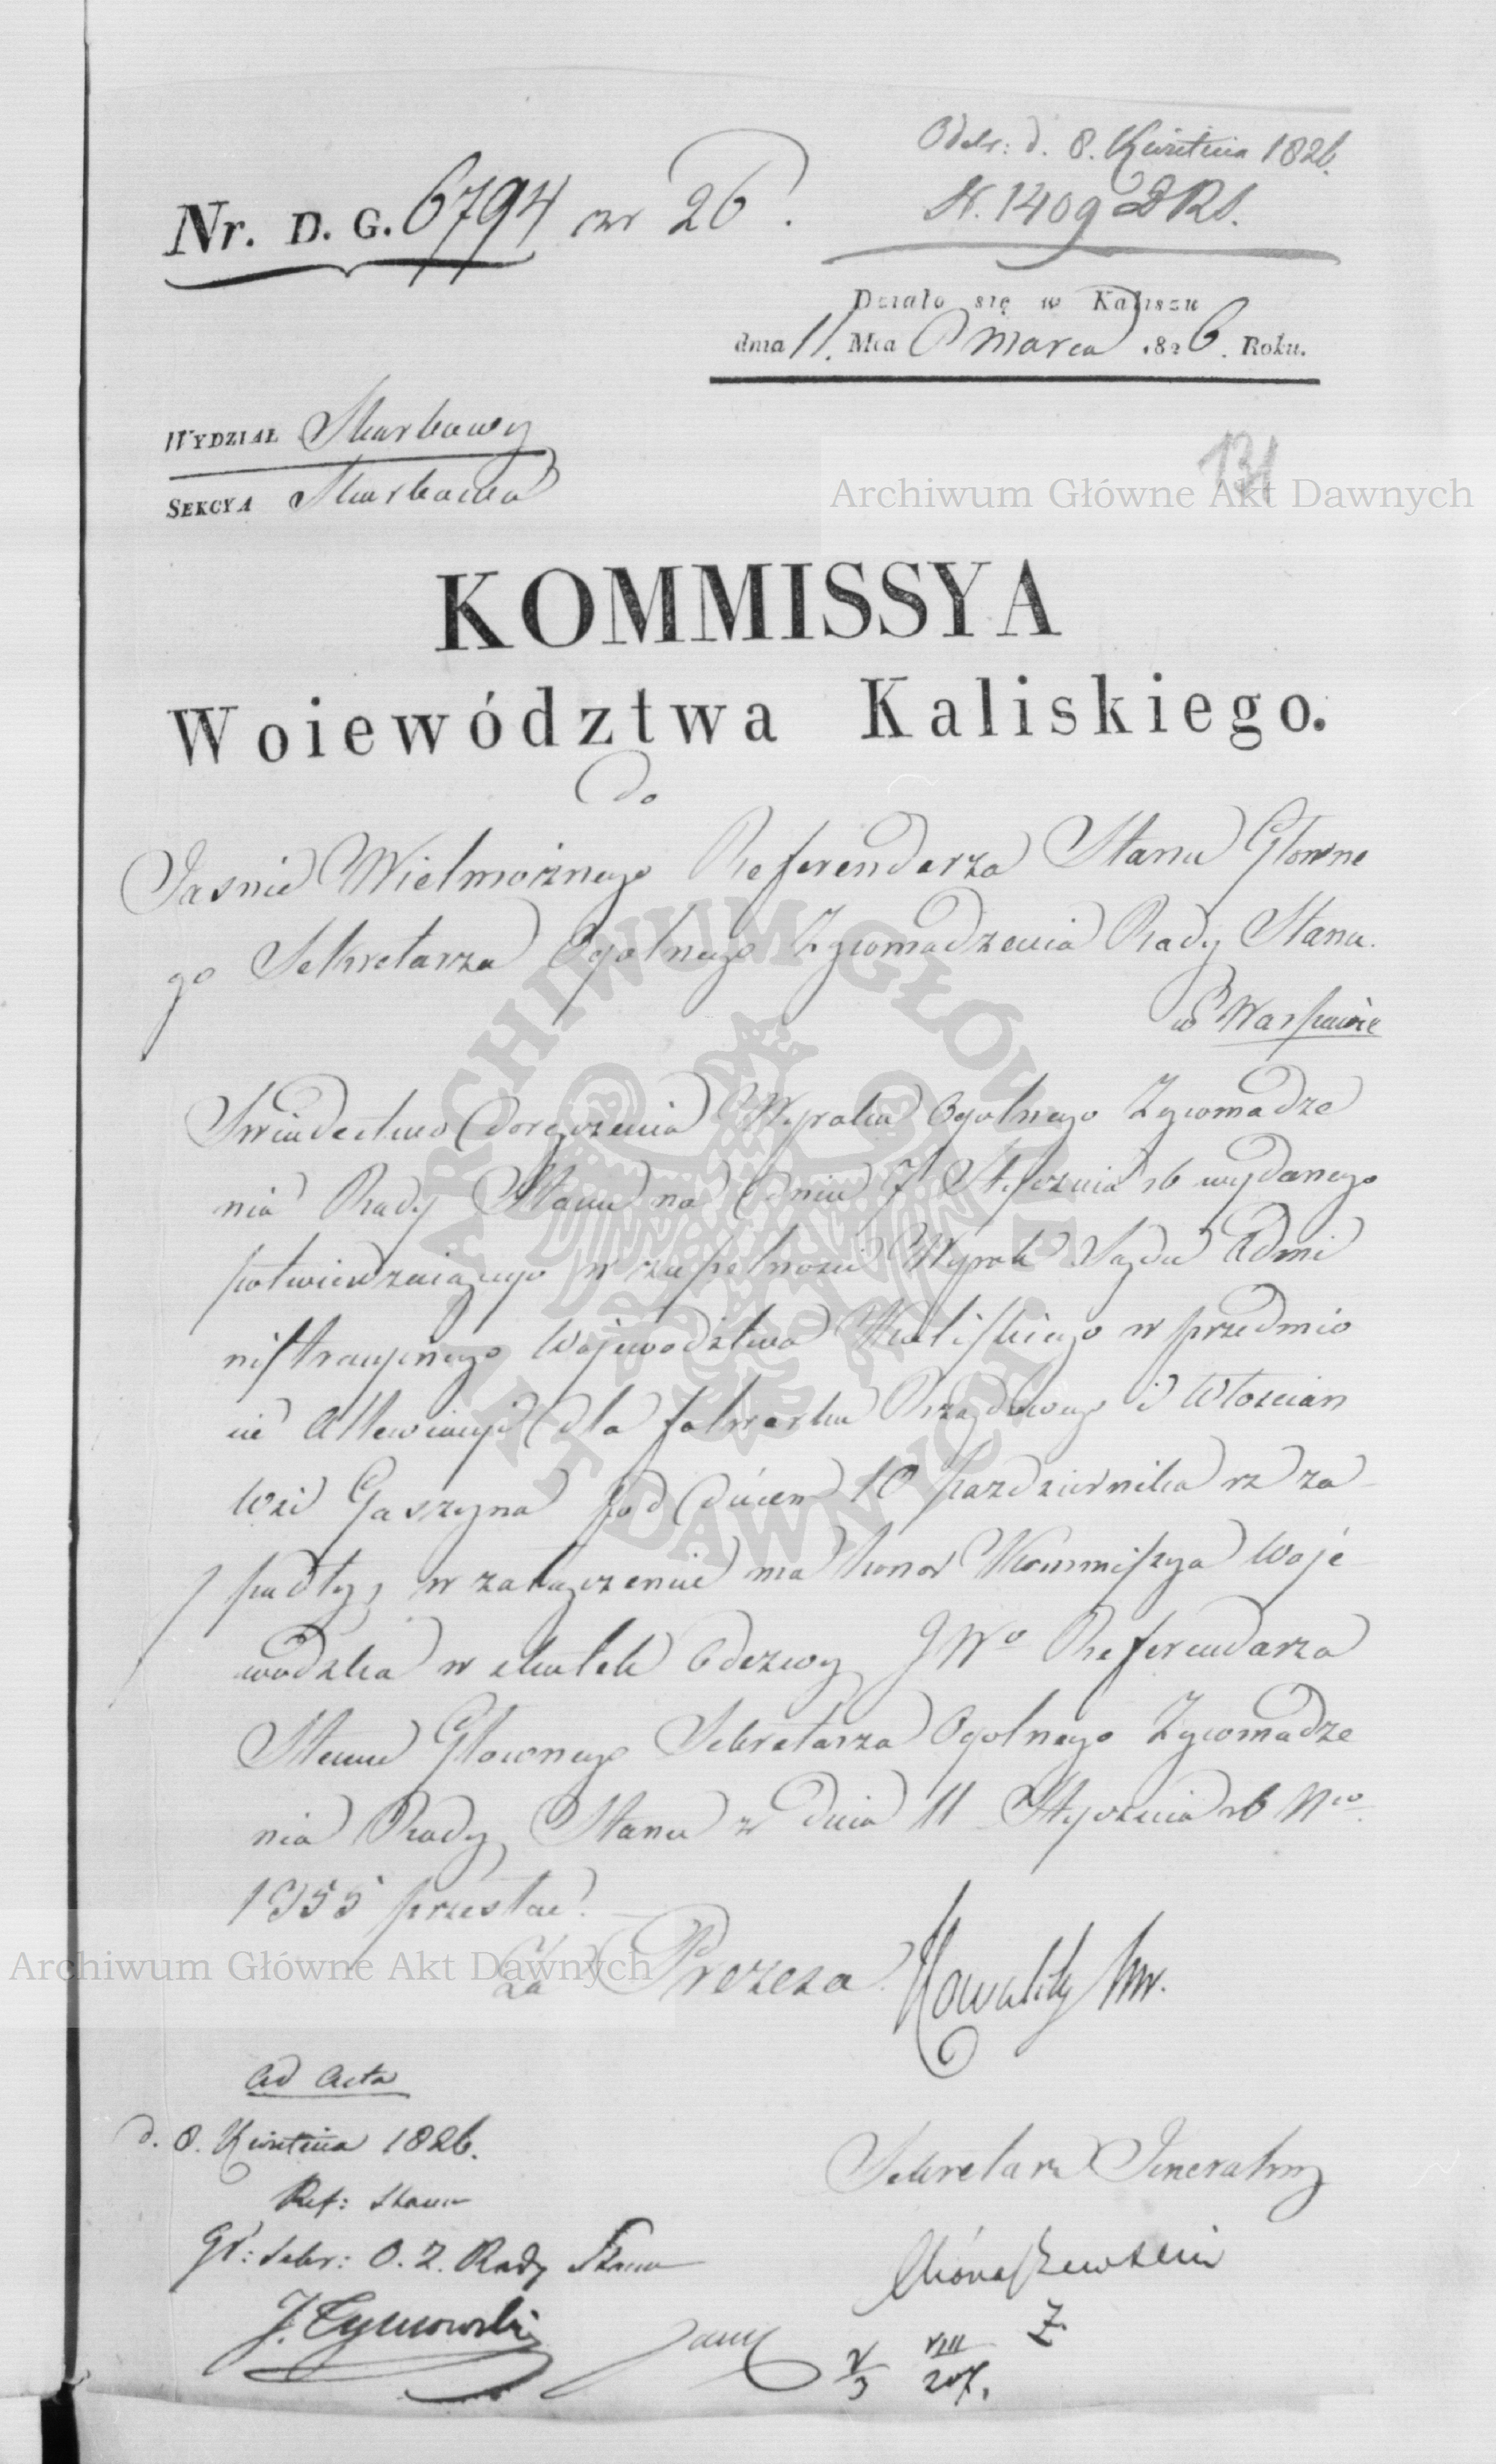 Odebr: d. 8. Kwietnia 1826.
N. 1409 D R S.
Nr. D. G. 6794 nr 26.
Działo się w Kaliszu
dnia 11. Mca Marca 1826. Roku.
WYDZIAŁ Skarbowy
SEKCYA Skarbowa
131
Archiwum Główne Akt Dawnych
KOMMISSYA
Woiewództwa Kaliskiego.
do
Jaśnie Wielmożnego Referendarza Stanu Główne
go Sekretarza Ogolnego Zgromadzenia Rady Stanu.
w Warszawie
Swiadectwo doręczenia Wyroku Ogolnego Zgromadze
nia Rady Stanu na dniu 7 Stycznia rb wydanego
potwierdzaiącego w zupełności Wyrok Sądu Admi
nistracyinego Wojewodztwa Kaliskiego w przedmio
cie Allewiacyi dla folwarku Rządowego i Włościan
Wsi Gaszyna pod dniem 10 Pazdziernika rz za
padły, w załączeniu ma honor Kommissya Woje
wodzka w skutek Odezwy JWo Referendarza
Stanu Głownego Sekretarza Ogolnego Zgromadze
nia Rady Stanu z dnia 11 Stycznia rb Nro
1955 przesłać.
Za Prezesa
Archiwum Główne Akt Dawnych
Ad Acta
d. 8. Kwietnia 1826.
Ref: Stanu
Gł: Sekr: O. Z. Rady Stanu
J. Tymowski
Sekretarz Jeneralny
V/3
VIII
207.
ARCHIWUM GŁÓWNE AKT DAWNYCH